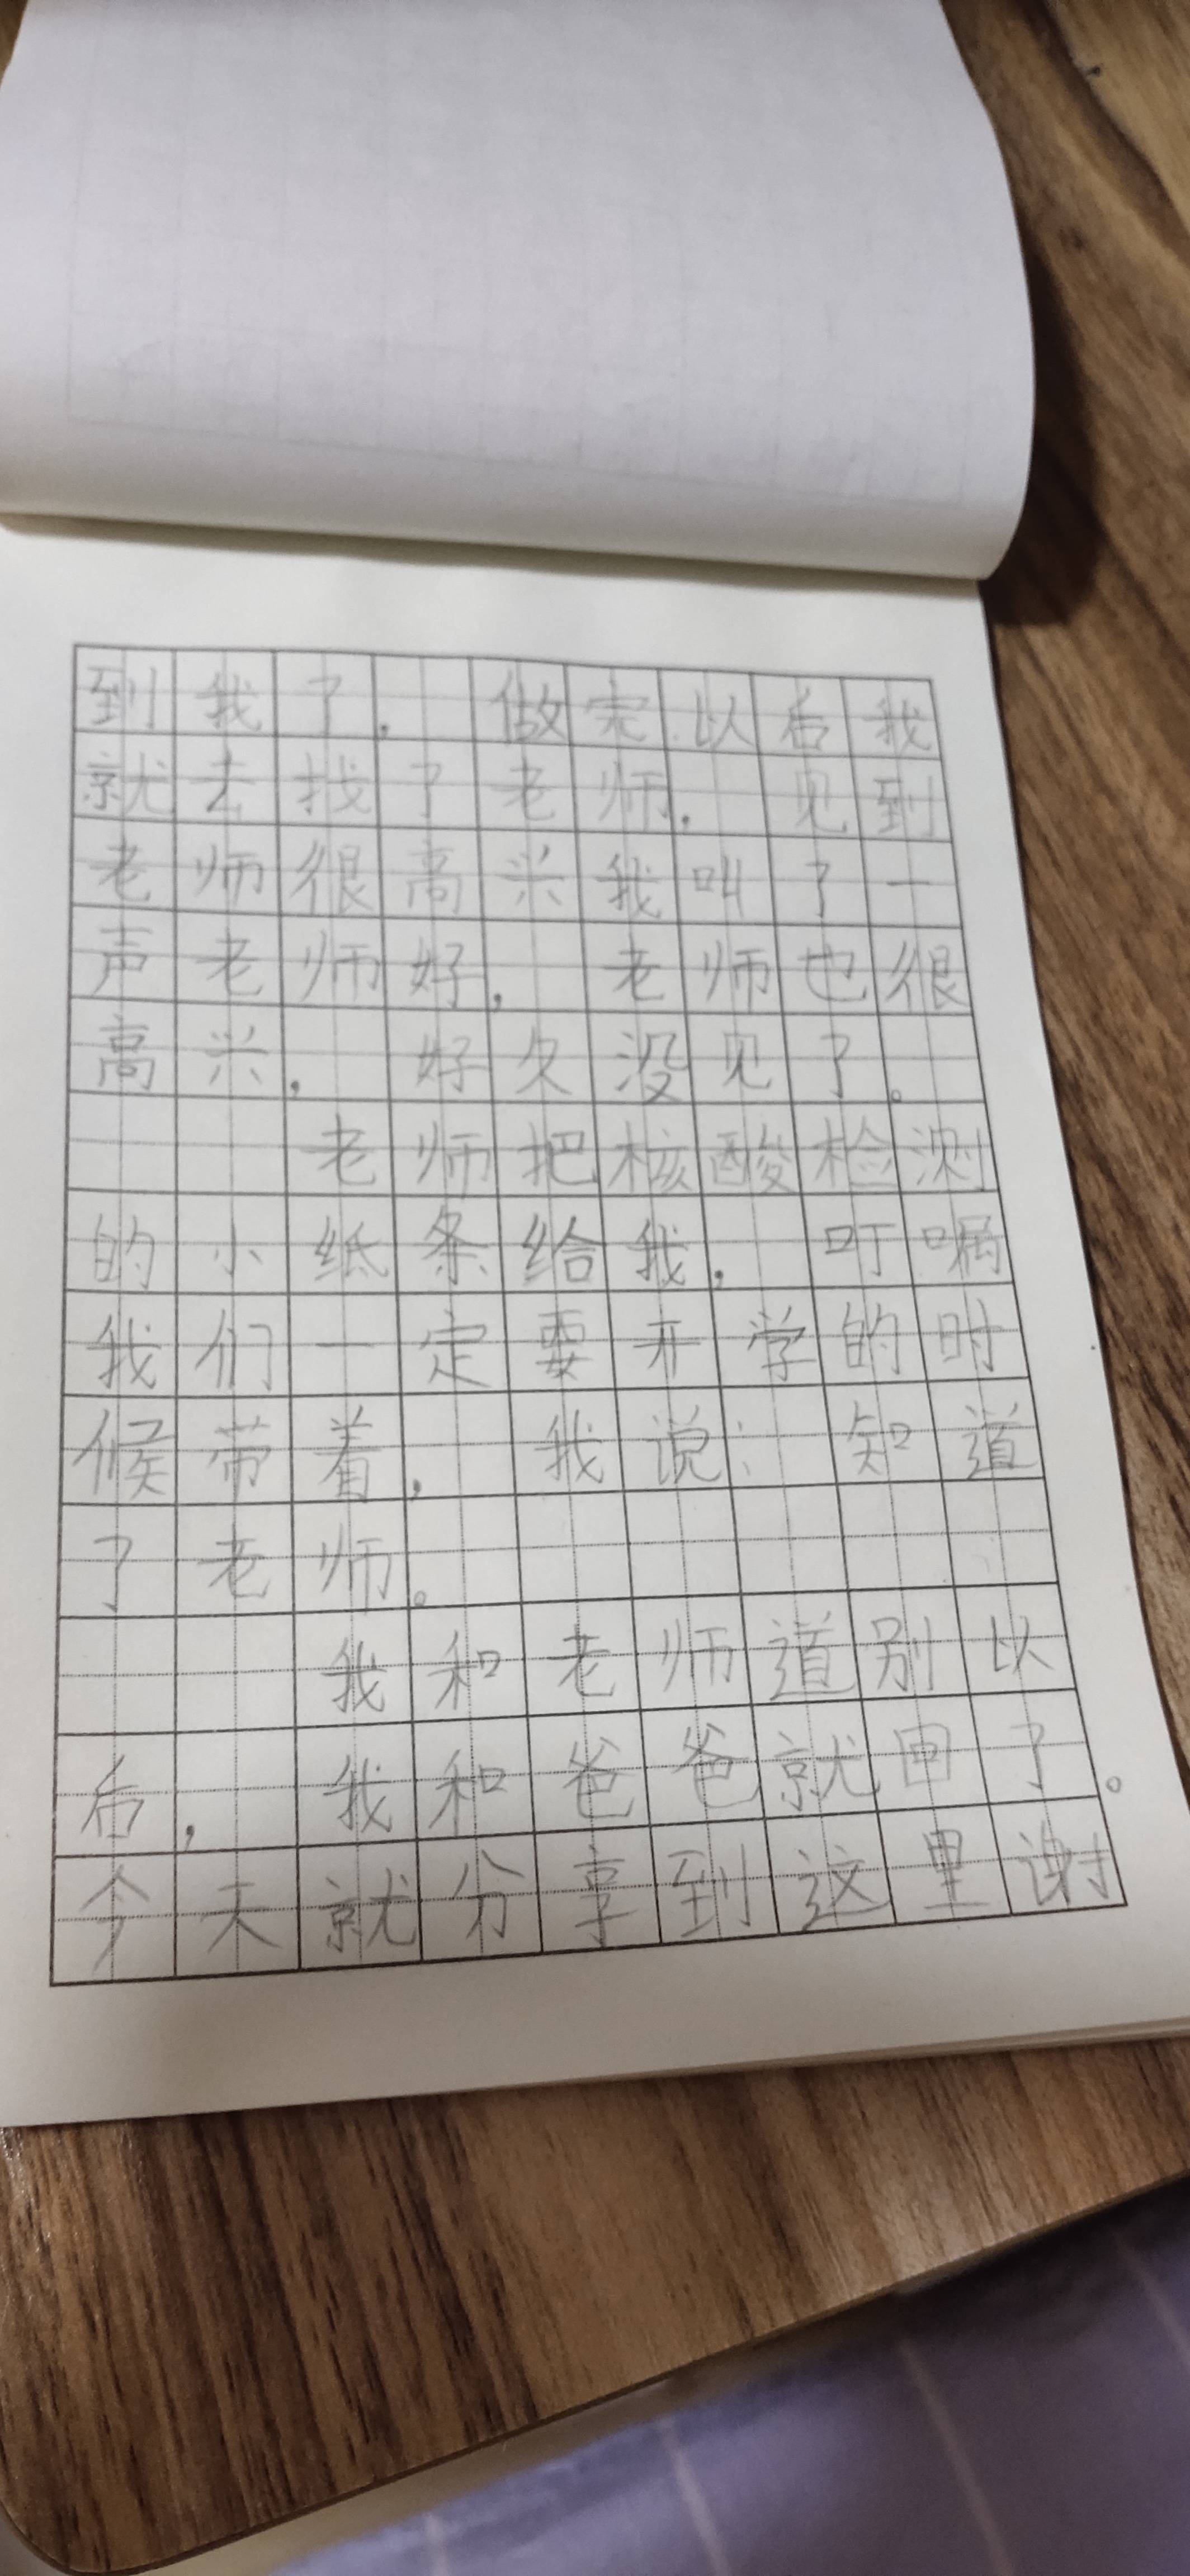 到我了，做完以后我
就去找了老师，见到
老师很高兴我叫了一
声老师好，老师也很
高兴，好久没见了。
老师把核酸检测
的小纸条给我，叮嘱
我们一定要开学的时
候带着，我说：知道
了老师。
我和老师道别以
后，我和爸爸就回了。
今天就分享到这里谢